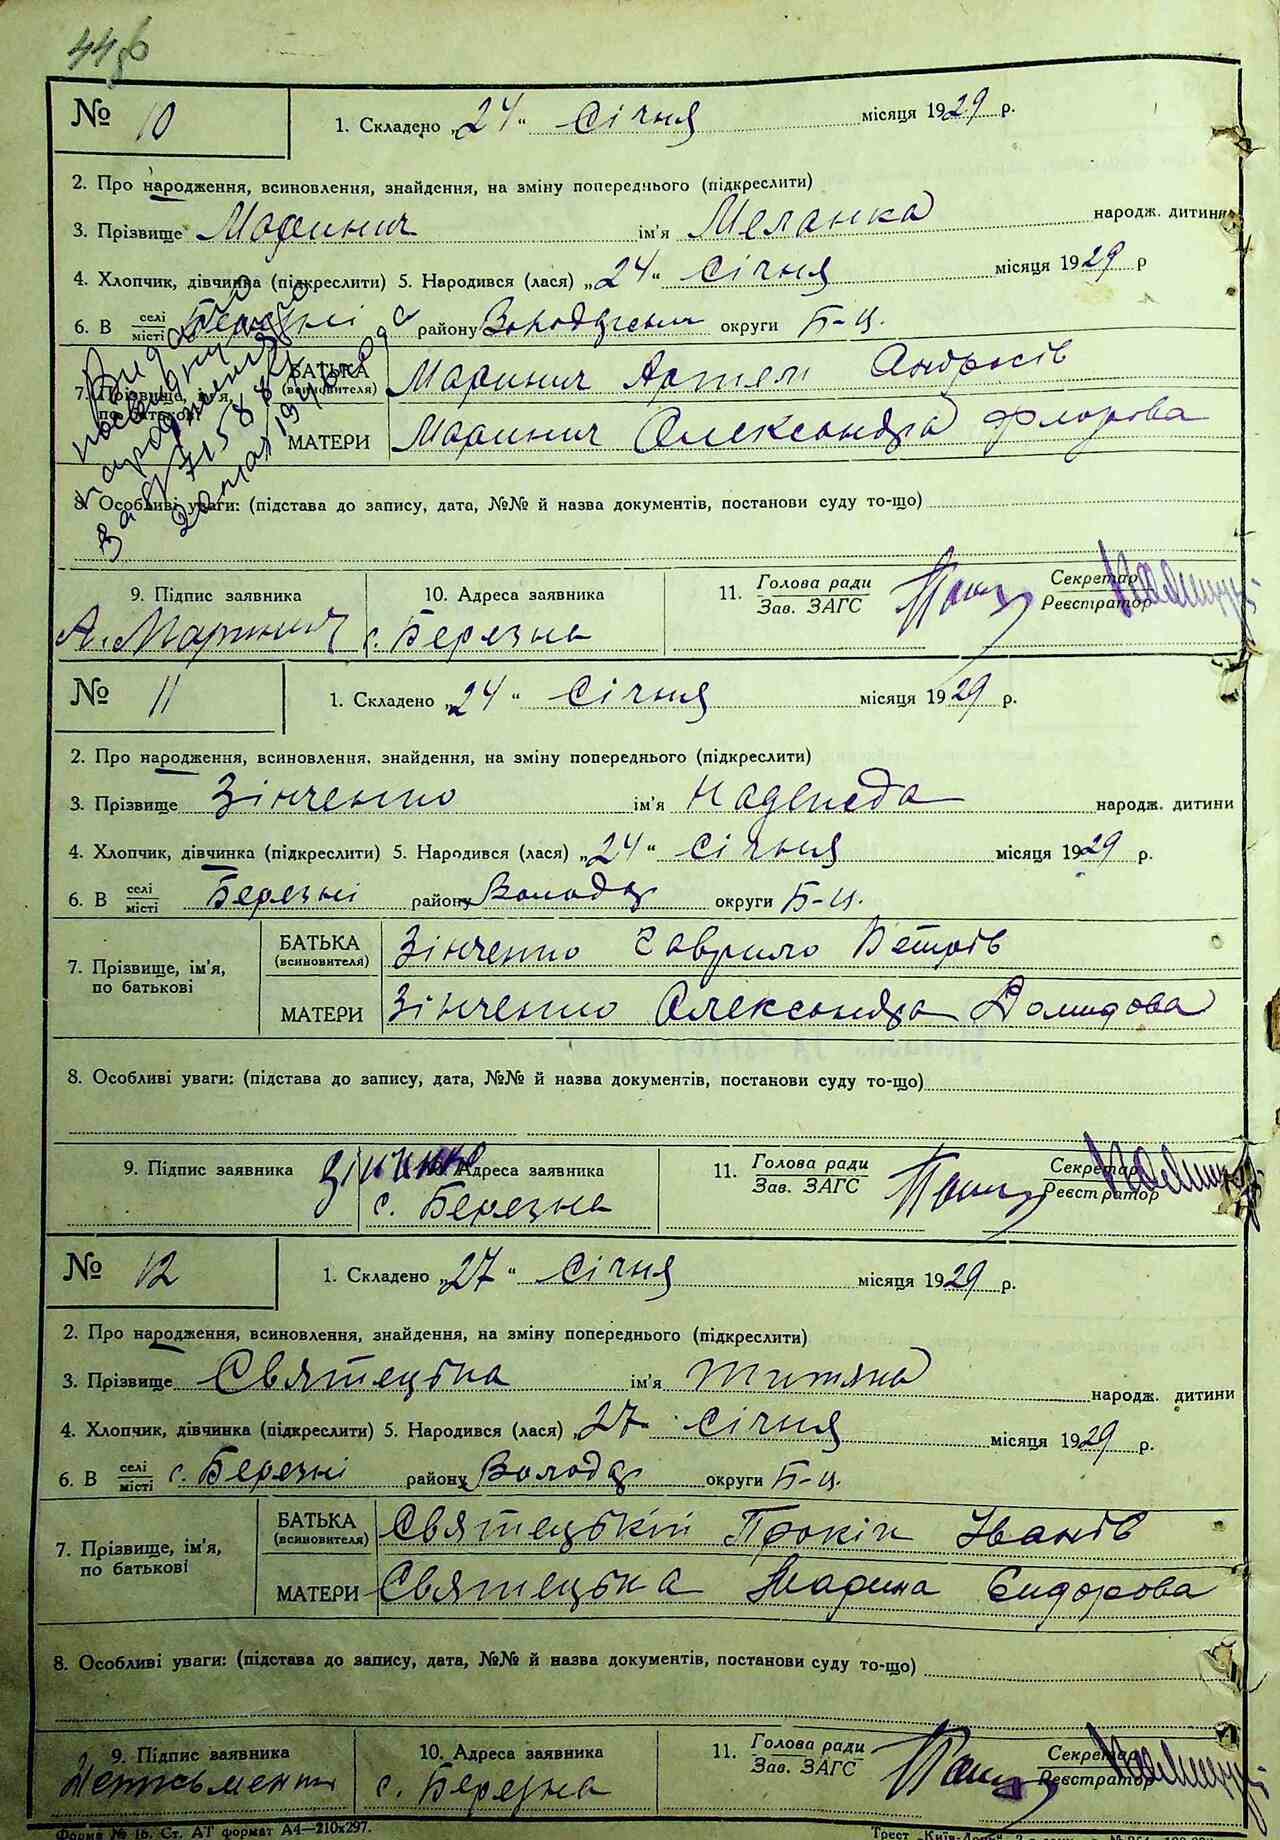 44зб
№ 10
1. Складено „24“ Січня місяця 1929 р.
2. Про народження, всиновлення, знайдення, на зміну попереднього (підкреслити)
3. Прізвище Маринич ім'я Меланка народж. дитини
4. Хлопчик, дівчинка (підкреслити) 5. Народився (лася) „24“ Січня місяця 1929 р
6. В селі місті Березні району Володарськ округи Б-Ц.
7. Прізвище, ім'я, по батькові
БАТЬКА (всиновителя) Маринич Артем Андросів
МАТЕРИ Маринич Олександра Флорова
Видано
посвідку про
народження
за 715881
20 мая 1940
8. Особливі уваги: (підстава до запису, дата, №№ й назва документів, постанови суду то-що)
9. Підпис заявника 10. Адреса заявника 11. Голова ради Зав. ЗАГС Секретар Реєстратор
А. Маринич с. Березна
№ 11
1. Складено „24“ Січня місяця 1929 р.
2. Про народження, всиновлення, знайдення, на зміну попереднього (підкреслити)
3. Прізвище Зінченко ім'я Надежда народж. дитини
4. Хлопчик, дівчинка (підкреслити) 5. Народився (лася) „24“ Січня місяця 1929 р.
6. В селі місті Березні району Волод округи Б-Ц.
7. Прізвище, ім'я, по батькові
БАТЬКА (всиновителя) Зінченко Гаврило Петрів
МАТЕРИ Зінченко Олександра Домидова
8. Особливі уваги: (підстава до запису, дата, №№ й назва документів, постанови суду то-що)
9. Підпис заявника Зінченко 10. Адреса заявника 11. Голова ради Зав. ЗАГС Секретар Реєстратор
с. Березна
№ 12
1. Складено „27“ Січня місяця 1929 р.
2. Про народження, всиновлення, знайдення, на зміну попереднього (підкреслити)
3. Прізвище Святецька ім'я Титяна народж. дитини
4. Хлопчик, дівчинка (підкреслити) 5. Народився (лася) „27 Січня місяця 1929 р.
6. В селі місті с. Березні району Волод округи Б-Ц.
7. Прізвище, ім'я, по батькові
БАТЬКА (всиновителя) Святецький Прокіп Іванів
МАТЕРИ Святецька Марина Сидорова
8. Особливі уваги: (підстава до запису, дата, №№ й назва документів, постанови суду то-що)
9. Підпис заявника 10. Адреса заявника 11. Голова ради Зав. ЗАГС Секретар Реєстратор
Неписьменн с. Березна
Форма № 16. Ст. АТ формат А4—210х297.